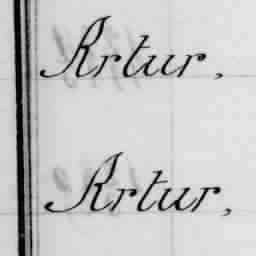 Artur,
Artur,